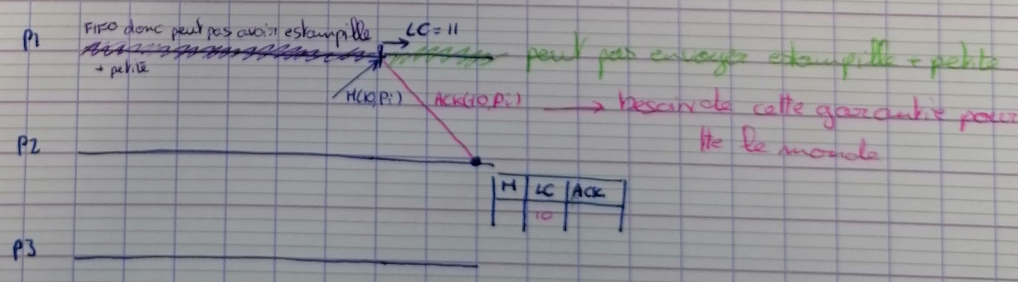 P1
FIFO donc peut pas avoir estampille
+ petite
LC = 11
peut pas envoyer estampille + petite
M(10,Pi)
ACK(10,Pi) → besoin de cette garantie pour
tte le monde
P2
M LC ACK
10
P3